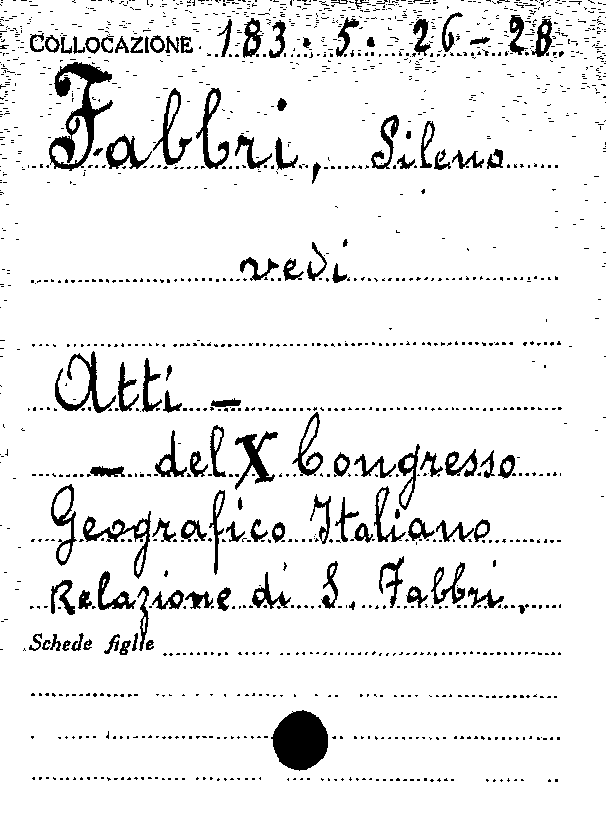 COLLOCAZIONE 183. 5. 26-28.
Fabbri, Sileno
vedi
Atti -
- del X Congresso
Geografico Italiano
Relazione di S. Fabbri.
Schede figlie